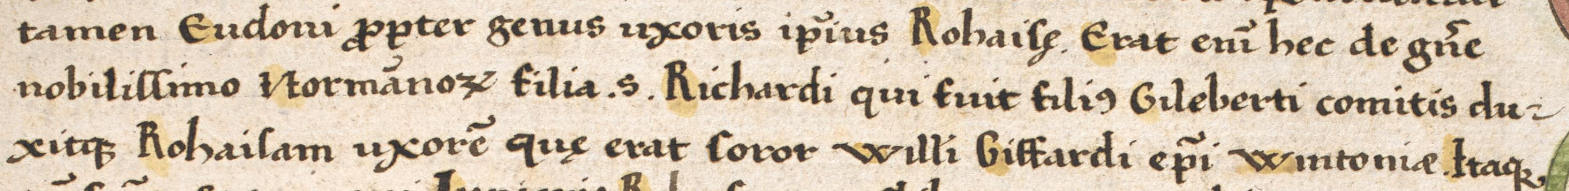 tamen Eudoni ꝓpter genus uxoris ip̄ius Rohaisę. Erat eni̅ hec de gn̄e
nobilissimo Normānoꝝ filia .s. Richardi qui fuit filiꝯ Gileberti comitis du-
xitqꝫ Rohaisam uxorē quę erat soror Willi Giffardi ep̄i Wintoniæ. Itaqꝫ